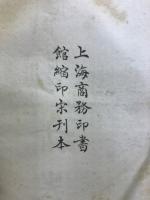 上海商務印書
館縮印宋刊本